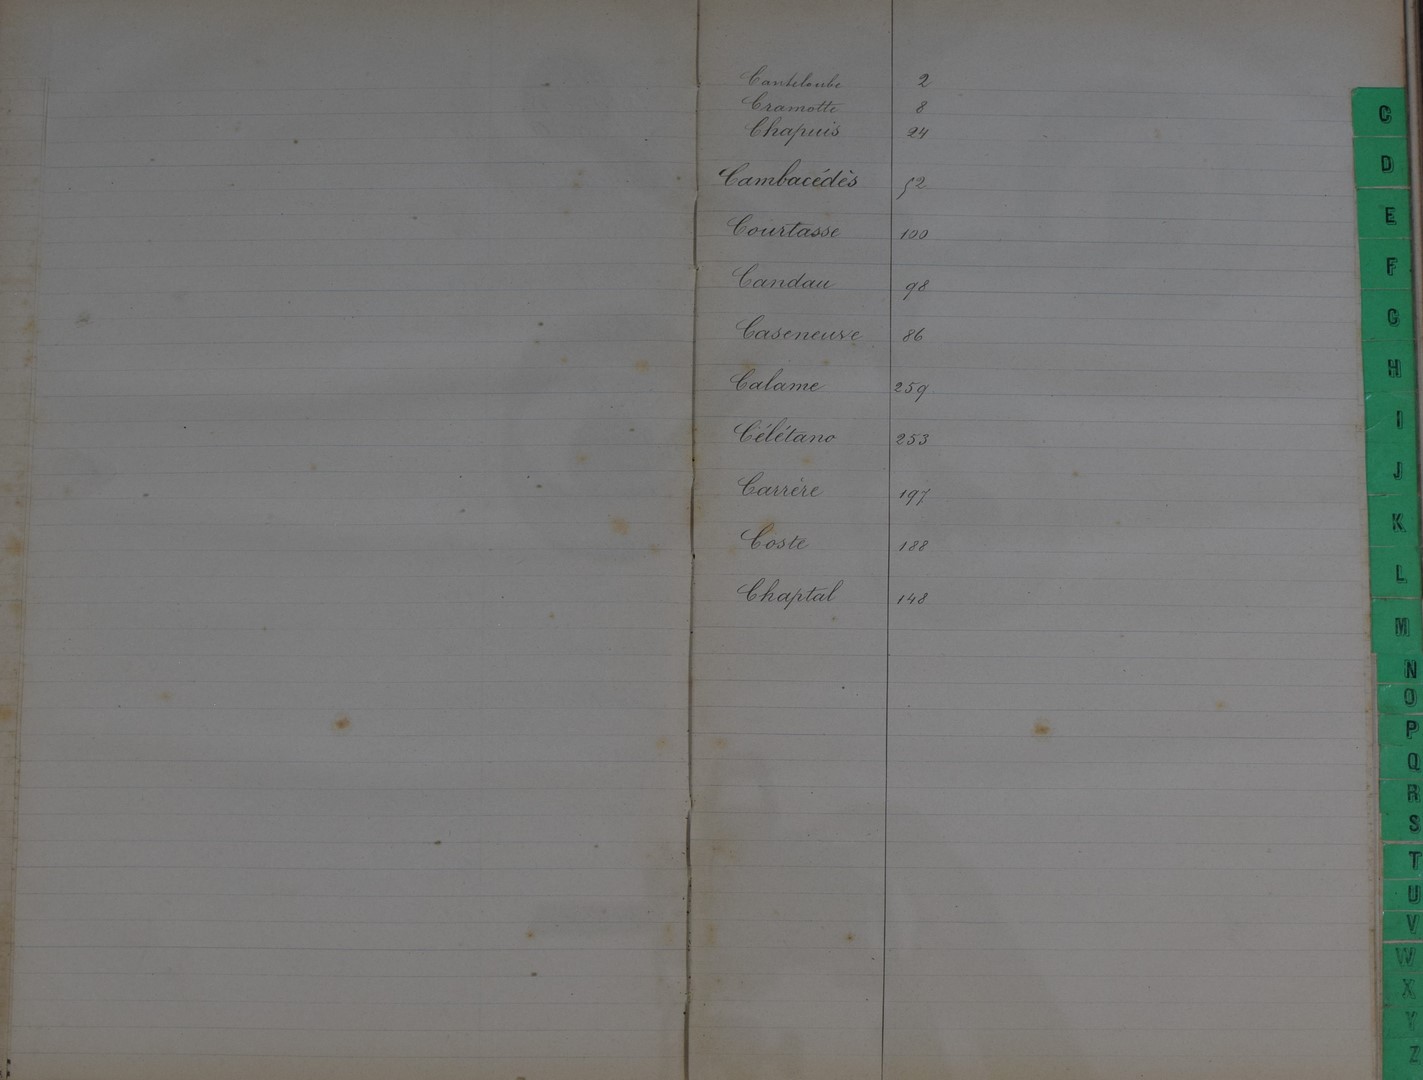 Canteloube 2
Cramotte 8
Chapuis 24
Cambacédès 52
Courtasse 100
Candau 98
Caseneuve 86
Calame 259
Célétano 253
Carrère 197
Coste 188
Chaptal 148
C
D
E
F
G
H
I
J
K
L
M
N
O
P
Q
R
S
T
U
V
W
X
Y
Z